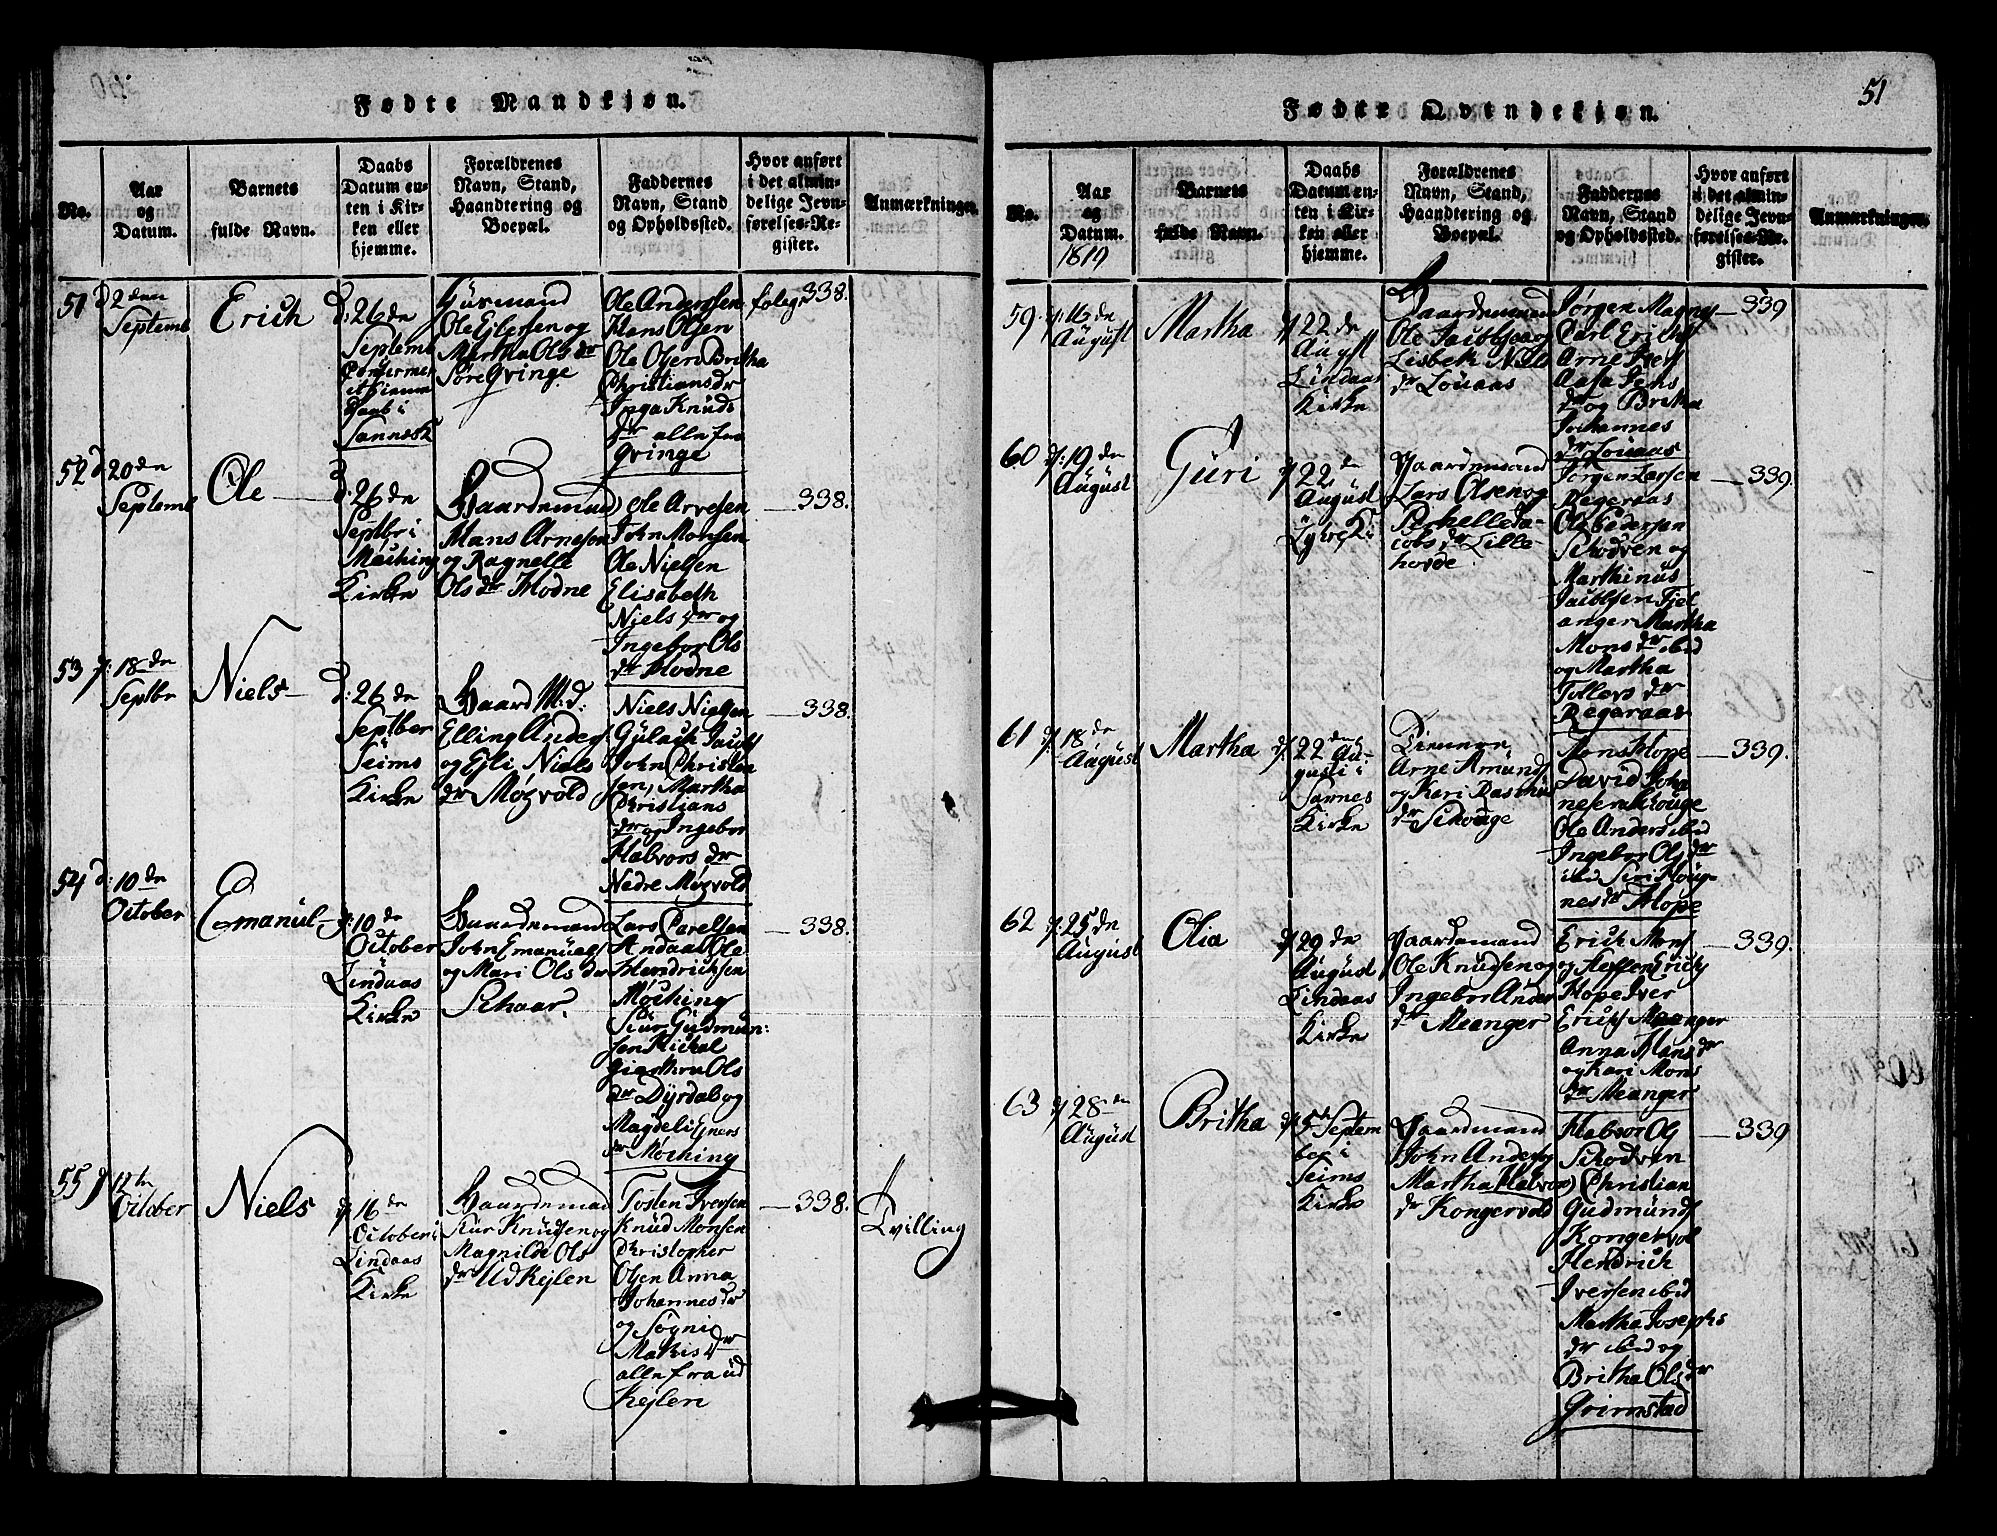 Fødte Mandkjøn.
No.
Aar
og
Datum.
Barnets
fulde Navn.
Daabs
Datum en-
ten i Kir-
ken eller
hjemme.
Forældrenes
Navn, Stand,
Haandtering og
Boepæl.
Faddernes
Navn, Stand
og Opholdssted.
Hvor anført
i det almin-
delige Jevn-
førelses-Re-
gister.
Anmærkninger.
51
d 2den
Septemb
Erich
d: 26de
Septemb
Daab i
Guxmand
Ole Ejlersen og
Martha Ols dr
Søre Qvinge
Ole Andersen
Hans Olsen
Ole Olsen Britha
Christians dr
Inga Knuds
dr alle fra
Qvinge
folge 338.
52
d: 20de
Septemb
Ole
d: 26de
Septbr i
Møching
Kirke
Gaardemand
Mans Arnesen
og Ragnelle
Ols dr Hodne
Ole Arnesen
John Monsen
Ole Nielsen
Elisabeth
Niels dr og
Ingebor Ols
dr Hodne
338.
53
d: 18de
Septbr
Niels
d: 26de
Septber
Seims
Kirke
Gaard Md:
Elling Anders
og Eli Niels
dr Møgvold
Niels Nielsen
Gulach Jacobs
John Christen
sen, Martha
Christians
dr og Ingebor
Halvors dr
Nedre Møgvold
338.
54
d: 10de
October
Emanuel
d: 10de
October
Lindaas
Kirke
Gaardemand
John Emanuels
og Mari Ols dr
Schaar.
Lars Carelsen
Andaas Ole
Hendrichsen
Møching
Siur Gudmun:
sen
Ols
dr Dyrdal og
Magdeli Ejners
dr Møching
338.
55
d 12te
October
Niels
d 16de
October i
Lindaas
Kirke
Gaardemand
Knudsen og
Magnilde Ols
dr Udkejlen
Tosten Iversen
Knud Monsen
Christopher
Olsen Anna
Johannes dr
og Søgni
dr
alle fra ud
Kejlen
338.
Tvilling
Fødte Qvindekjøn.
51
No.
Aar
og
Datum.
1819
Barnets
fulde Navn.
Daabs
Datum en-
ten i Kir-
ken eller
hjemme.
Forældrenes
Navn, Stand,
Haandtering og
Boepæl.
Faddernes
Navn, Stand
og Opholdssted.
Hvor anført
i det almin-
delige Jevn-
førelses-Re-
gister.
Anmærkninger.
59
d: 16de
August
Martha
d 22de
Augst
Lindaas
Kirke
Gaardemand
Ole Jacobsen og
Lisbek Niels
dr Louaas
Jørgen Magny
Carl Erichs
Arne Ivers
Aasa Jens
dr og Britha
Johannes
dr Louaas
339
60
d: 19de
August
Guri
d 22de
August
i
Lygre Ki
Gaardemand
Lars Olsen og
Perhelle Ja-
cobs dr Lille-
horde
Jørgen Larsen
Regeraas
Ole Pedersen
Schodven og
Marthinus
Jacobsen Fjel
anger Martha
Mons dr ibid
og Martha
Tollevs dr
Regeraas
339
61
d: 18de
August
Martha
d: 22de Au:
gusti i
Sannes
Kirke
Arne Amunds
og Kari Rasmus
dr Schouge
Mons Hope
David Johan
nesen Schouge
Ole Anders ibid
Ingebor Ols dr
ibid Siri Hans
dr Hope
339.
62
d: 25de
August
Olia
d 29de
August
Lindaas
Kirke
Gaardemand
Ole Knudsen og
Ingebor Ander
dr Meanger
Erich Mons
og Steffen Erichs
Hope Iver
Erichs Meanger
Anna Mans dr
og Kari Mons
dr Meanger
339.
63
d 28de
August
Britha
d 5te Septem
ber i
Seims
Kirke
Gaardmand
John Anders og
Martha Halvors
dr Kongervold
Halvor Ols
Schodven
Christian
Gudmunds
Kongervol
Hendrich
Iversen ibid
Martha Josephs
dr ibid og
Britha Ols dr
Grimstad
339